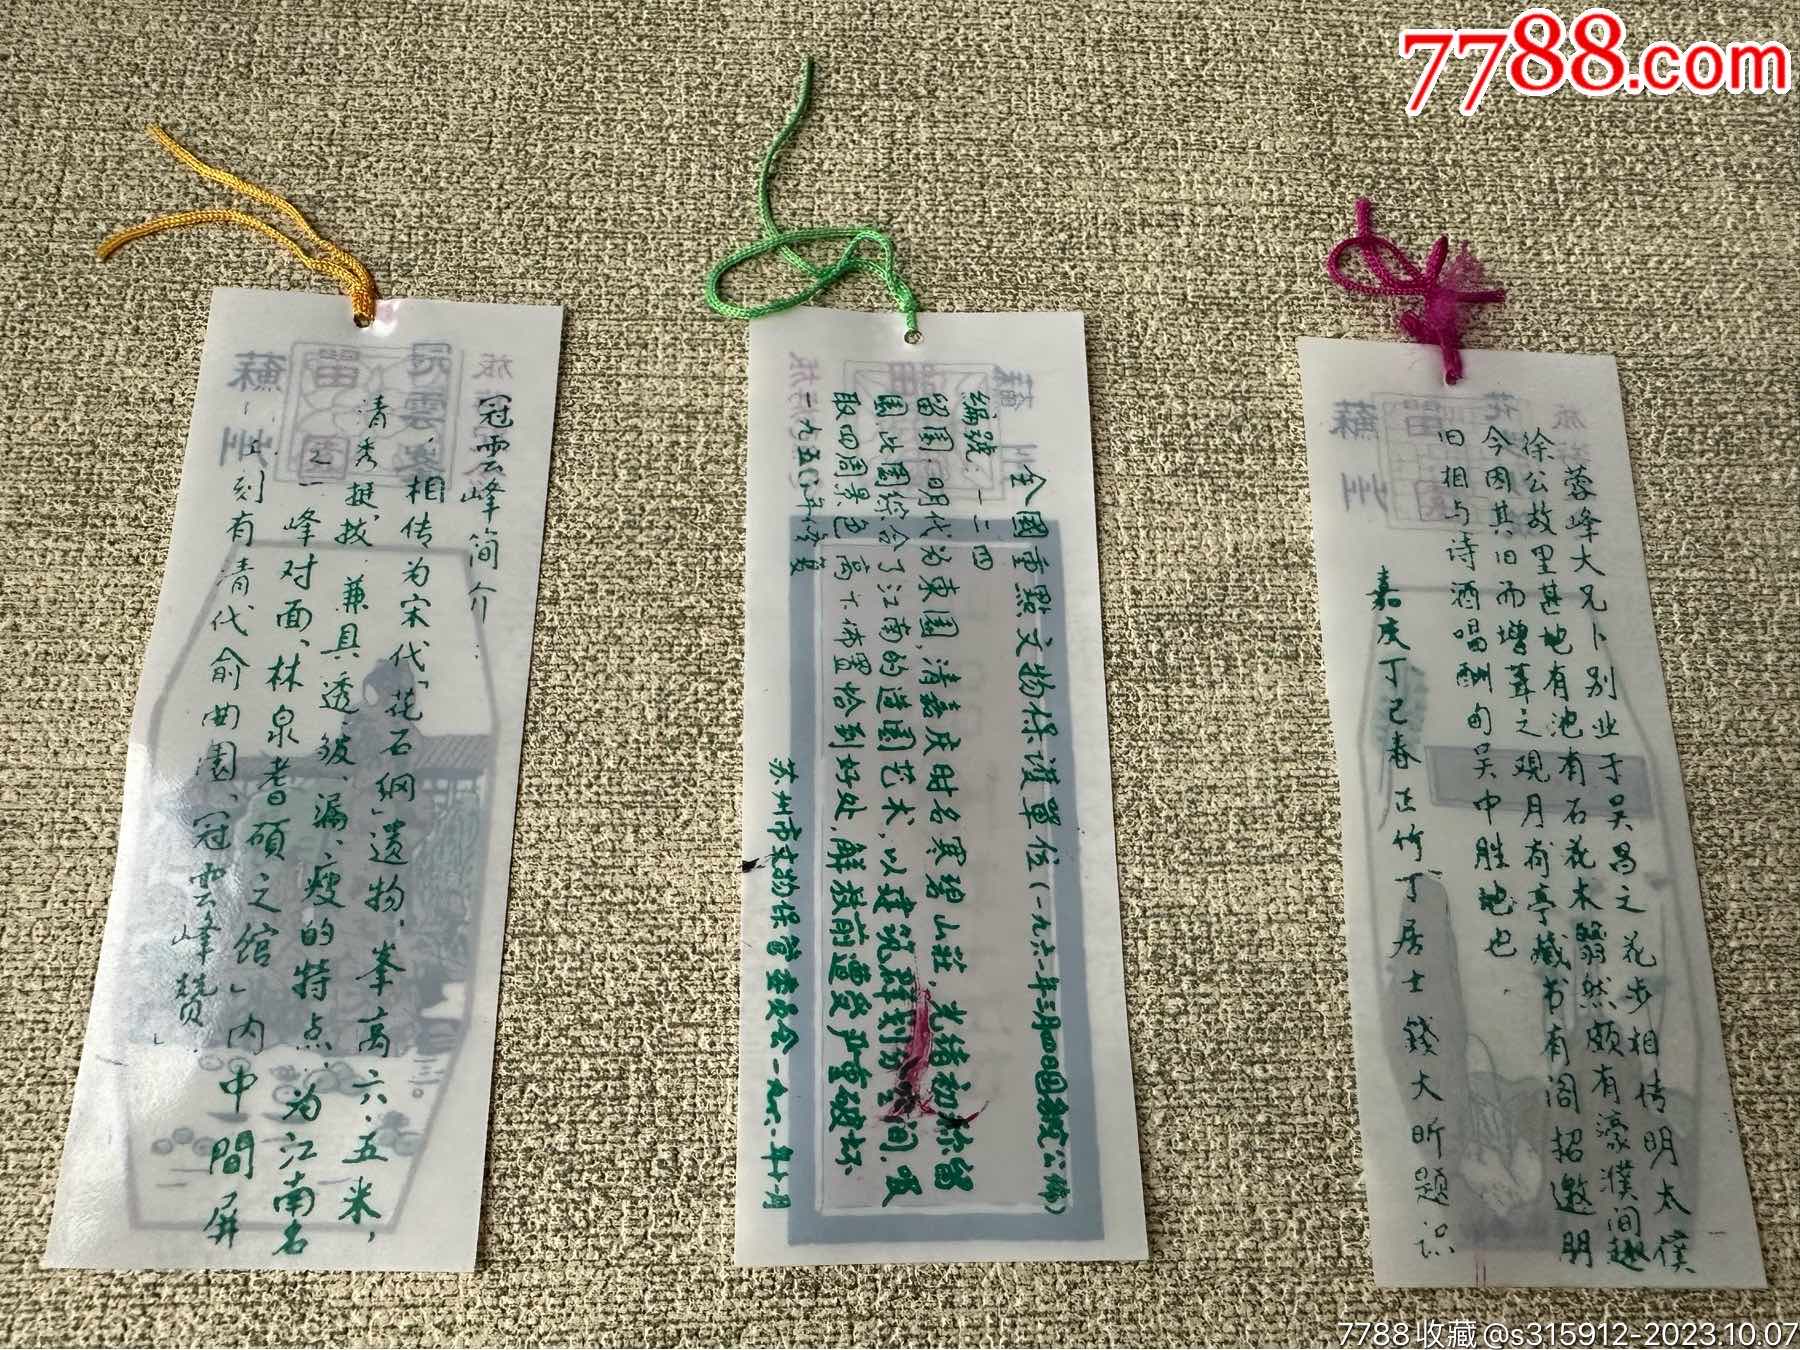 7788.com
冠雲峰简介:
相传为宋代「花石纲」遗物,峯高六.五米,
清秀挺拔,兼具透、皱、漏、瘦的特点,为江南名
峰之一,峰对面、林泉耆硕之馆」内中間屏
上刻有清代俞曲園、冠雲峰贊」.
全國重點文物保護單位(一九六一年三月四日国务院公佈)
編號:一三四
留園:明代为東園,清嘉庆时名寒碧山莊,光绪初称留
園,此園综合了江南的造園艺术,以建筑群划分空间.吸
取四周景色高下佈置恰到好处,解放前遭受严重破坏
一九五〇年修复
苏州市文物保管委员会一九六一年十一月
蓉峰大兄卜别业于吴昌之花步相传明太僕
徐公故里甚地有池有石花木翳然颇有濠濮间趣
今因其旧而增葺之观月有亭藏书有阁招邀朋
旧相与诗酒唱酬旬吴中胜地也
嘉庆丁巳春正竹丁居士錢大昕题识
蘇州
留園
冠雲峰
7788收藏@s315912-2023.10.07